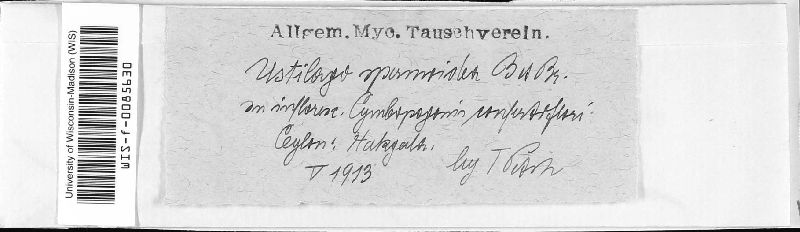 Allgem. Myc. Tauschverein.
Ustilago spermoidea B et Br.
in infloresc. Cymbopogonis confertiflori.
Ceylon: Hakgala.
V 1913
leg T Petch
University of Wisconsin-Madison (WIS)
WIS-f-0065930